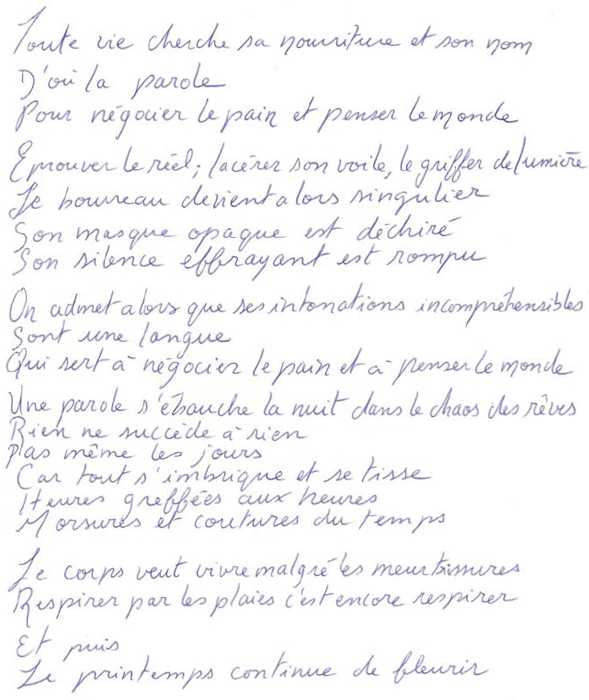 Toute vie cherche sa nourriture et son nom
D'où la parole
Pour négocier le pain et penser le monde
Eprouver le réel; lacérer son voile, le griffer de lumière
Le bourreau devient alors singulier
Son masque opaque est déchiré
Son silence effrayant est rompu
On admet alors que ses intonations incompréhensibles
Sont une langue
Qui sert à négocier le pain et à penser le monde
Une parole s'ébauche la nuit dans le chaos des rêves
Rien ne succède à rien
Pas même les jours
Car tout s'imbrique et se tisse
Heures greffées aux heures
Morsures et coutures du temps
Le corps veut vivre malgré les meurtissures
Respirer par les plaies c'est encore respirer
Et puis
Le printemps continue de fleurir